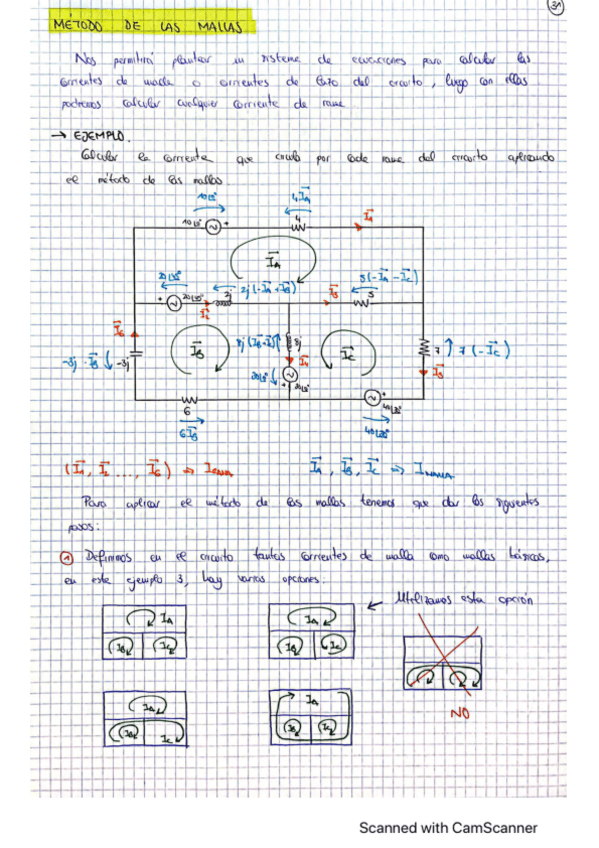 31
MÉTODO DE LAS MALLAS
Nos permitirá plantear un sistema de ecuaciones para calcular las
corrientes de malla o corrientes de lazo del circuito, luego con ellas
podremos calcular cualquier corriente de rama.
→ EJEMPLO.
Calcular la corriente que circula por cada rama del circuito aplicando
el método de las mallas.
4 I_A
4
I_A
2j (-I_A + I_B)
5 (-I_A - I_C)
2j
5
I_B
I_C
-3j · I_B
-3j
8j
7
7 (-I_C)
6
6 I_B
(I_1, I_2 ..., I_6) ⇒ I_RAMA
I_A, I_B, I_C ⇒ I_MALLA
Para aplicar el método de las mallas tenemos que dar los siguientes
pasos:
① Definimos en el circuito tantas corrientes de malla como mallas básicas,
en este ejemplo 3, hay varias opciones:
← Utilizamos esta opción
I_A
I_B
I_C
I_A
I_B
I_C
NO
I_A
I_B
I_C
I_A
I_B
I_C
Scanned with CamScanner